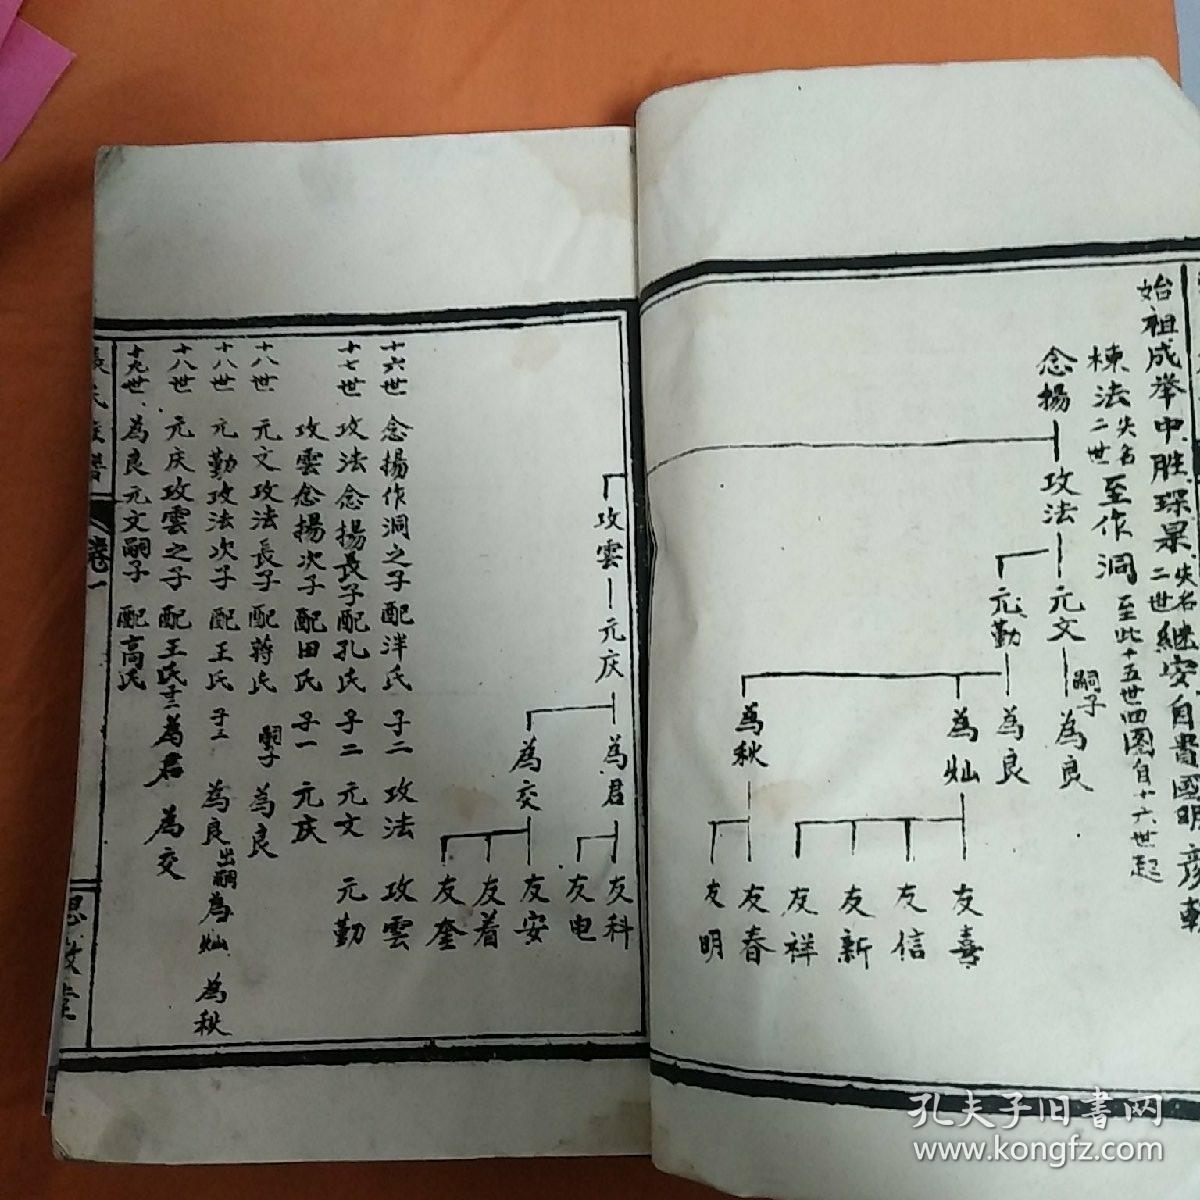 始祖成举中胜琛杲失名二世继安自書國明彦
棟法失名二世至作洞至此十五世四图自十六世起
念揚
攻法
元文
元勤
嗣子為良
為良
為灿
為秋
友喜
友信
友新
友祥
友春
友明
攻雲
元庆
為君
為交
友科
友电
友安
友着
友奎
十六世 念揚作洞之子配泮氏 子二 攻法 攻雲
十七世 攻法念揚長子配孔氏 子二 元文 元勤
攻雲念揚次子配田氏 子一 元庆
十八世 元文攻法長子配蒋氏 嗣子 為良
十八世 元勤攻法次子配王氏 子三 為良出嗣為灿 為秋
十八世 元庆攻雲之子配王氏子二為君 為交
十九世 為良元文嗣子配高氏
張氏族譜
卷一
思敬堂
孔夫子旧書网
www.kongfz.com